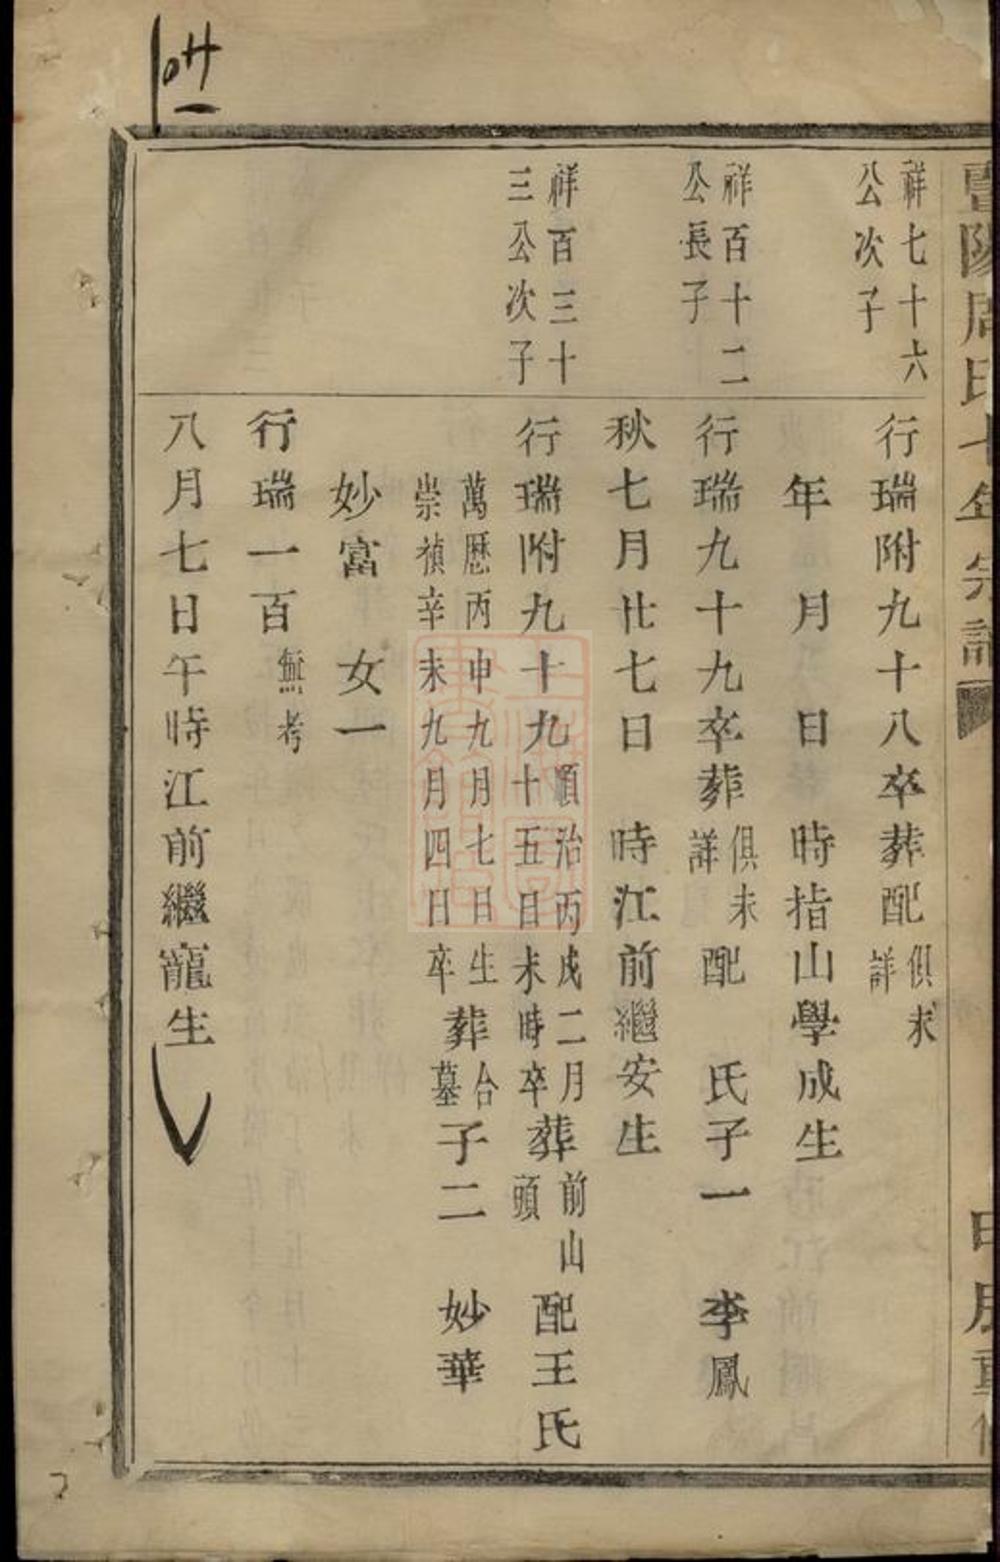 暨陽周氏
宗譜
祥七十六
公次子
行瑞附九十八卒葬配俱未
詳
年 月 日 時指山學成生
祥百十二
公長子
行瑞九十九卒葬俱未
詳
配 氏子一 李鳳
秋七月廿七日 時江前繼安生
祥百三十
三公次子
行瑞附九十九順治丙戌二月
十五日未時卒
葬前山
頭
配王氏
萬歷丙申九月七日生
崇禎辛未九月四日卒
葬合
墓
子二 妙華
妙富 女一
行瑞一百無考
八月七日午時江前繼寵生